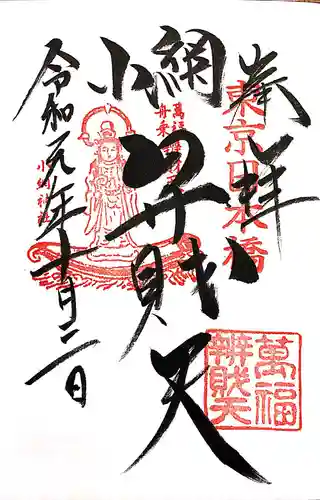 奉拝
東京日本橋
小網
弁財天
萬福舟乗
小網神社
令和元年十月二日
萬福
辨財天